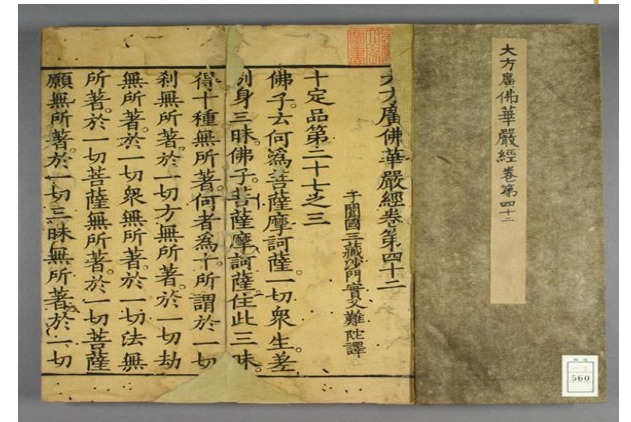 大方廣佛華嚴經卷第四十二
大方廣佛華嚴經卷第四十二
于闐國三藏沙門實叉難陀譯
十定品第二十七之三
佛子。云何爲菩薩摩訶薩一切衆生差
別身三昧。佛子。菩薩摩訶薩住此三昧。
得十種無所著。何者爲十。所謂於一切
剎無所著。於一切方無所著。於一切劫
無所著。於一切衆無所著。於一切法無
所著。於一切菩薩無所著。於一切菩薩
願無所著。於一切三昧無所著。於一切
560